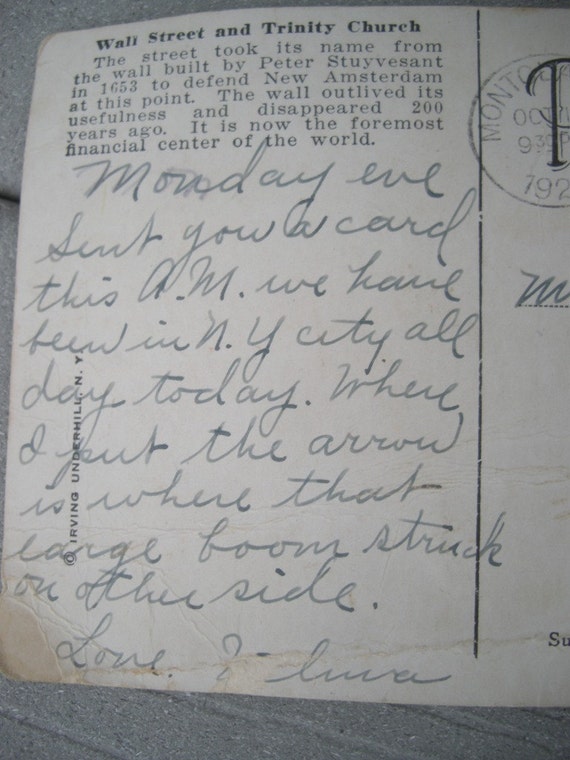 Wall Street and Trinity Church
The street took its name from
the wall built by Peter Stuyvesant
in 1653 to defend New Amsterdam
at this point. The wall outlived its
usefulness and disappeared 200
years ago. It is now the foremost
financial center of the world.
Monday eve
Sent you a card
this A.M. we have
been in N.Y city all
day today. Where
I put the arrow
is where that
large boom struck
on other side.
Love.
© IRVING UNDERHILL, N. Y.
MONTCL
OCT
930P
192
T
M
Su